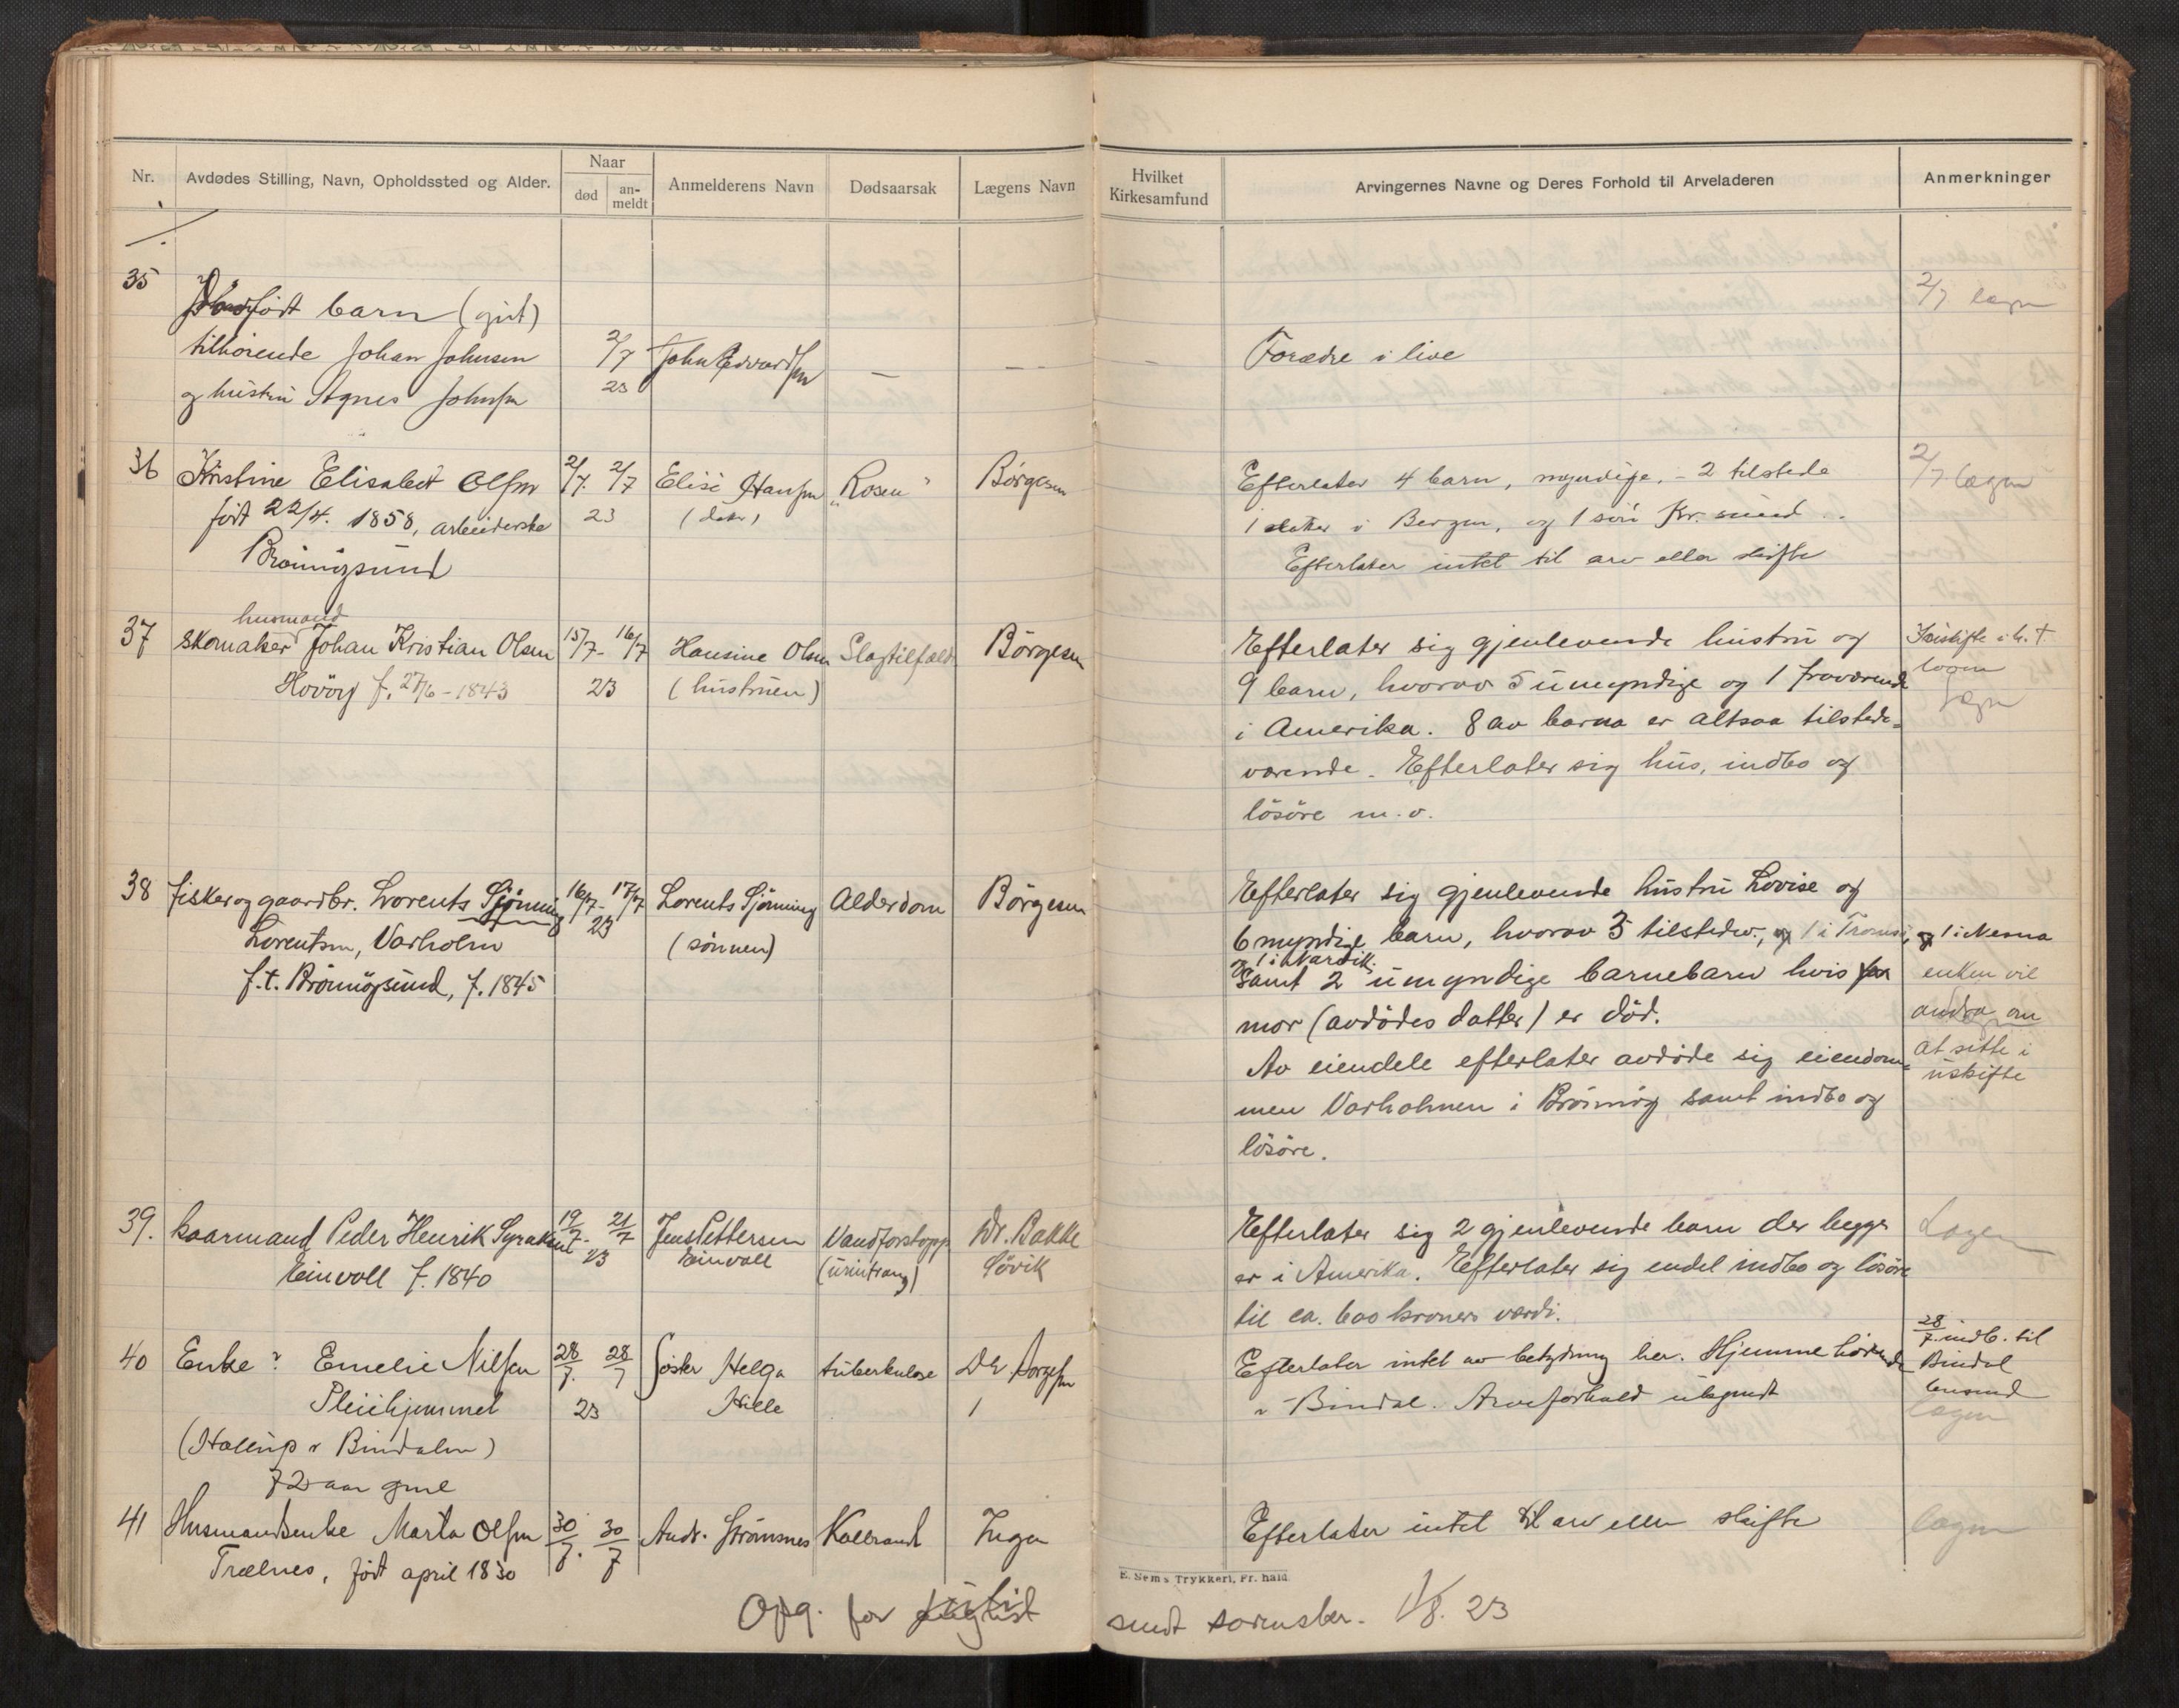 Nr.
Avdødes Stilling, Navn, Opholdssted og Alder.
Naar
død
an-
meldt
Anmelderens Navn
Dødsaarsak
Lægens Navn
Hvilket
Kirkesamfund
Arvingernes Navne og Deres Forhold til Arveladeren
Anmerkninger
35
født barn (gut)
tilhörende Johan Johnsen
og hustru Agnes Johnsen
2/7
23
John Edvardsen
—
—
—
Forældre i live
2/7 lagn
36
Kristine Elisabet Olsen
født 22/4. 1858, arbeiderske
Brönnögsund
2/7. 2/7
23
Elise Hansen
(datr)
„Rosen"
Börgesen
Efterlater 4 barn, myndige, - 2 tilstede
1 datter i Bergen, og 1 søn i Kr. sund
Efterlater intet til arv eller skifte
2/7 lagn
37
husmand
Skomaker Johan Kristian Olsen
Hovöy f. 27/6 - 1843
15/7 - 16/7
23
Hansine Olsen
(hustruen)
Slagtilfælde
Börgesen
Efterlater sig gjenlevende hustru og
9 barn, hvorav 5 umyndige og 1 fraværende
i Amerika. 8 av barna er altsaa tilstede-
værende. Efterlater sig hus, indbo og
lösöre m. v.
lagn
38
fisker og gaardbr. Lorents Sjönning
Lorentsen, Varholm
f.t. Brönnögsund, f. 1845
16/7 - 17/7
23
Lorents Sjönning
(sönnen)
Alderdom
Börgesen
Efterlater sig gjenlevende hustru Lovise og
6 myndige barn, hvorav 3 tilstedev., og 1 i Tromsö, og 1 i Nesna
og 1 i Narvik.
Samt 2 umyndige barnebarn hvis
mor (avdödes datter) er död.
Av eiendele efterlater avdöde sig eiendom-
men Varholmen i Brönnöy samt indbo og
lösöre.
enken vil
andra om
at sitte i
uskifte
39.
kaarmand Peder Henrik
Einvoll f. 1840
19/7 - 21/7
23
Jens Pettersen
Einvoll
Vandforstopp.
(urintrang)
Dr. Bakke
Sövik
Efterlater sig 2 gjenlevende barn der begge
er i Amerika. Efterlater sig endel indbo og lösöre
til ca. 600 kroners værdi.
Lagn
40
Enke ? Emelie Nilsen
Pleiehjemmet
(Hallup i Bindalen)
72 aar gml
28/7. 28/7
23
Söster Helga
Hille
tuberkulose
Dr Börgesen
Efterlater intet av betydning her. Hjemmehörende
i Bindal. Arveforhold ukjendt
28/7. indb. til
Bindal
lensmd
lagn
41
Husmandsenke Marta Olsen
Trælnes, født april 1830
30/7. 30/7
Andr. Strömsnes
Kolbrand
Ingen
Efterlater intet til arv eller skifte
lagn
E. Sem's Trykkeri, Fr.hald
Opg. for juli
sendt sorenskr. 1/8. 23